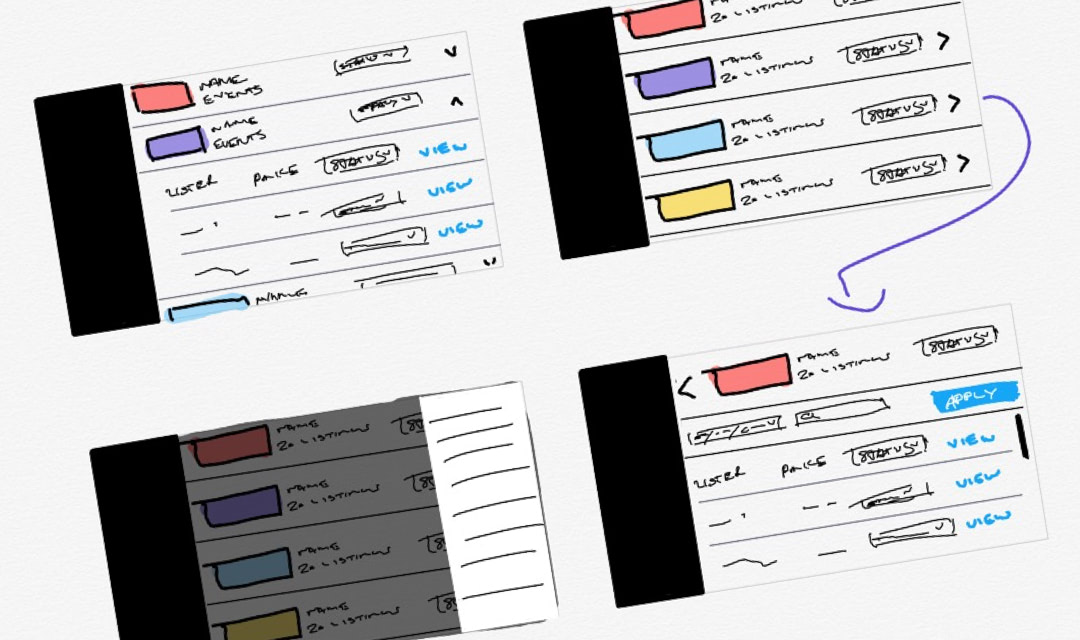 NAME
EVENTS
STATUS
NAME
EVENTS
STATUS
LISTER PRICE STATUS VIEW
VIEW
VIEW
NAME
20 LISTINGS
NAME
20 LISTINGS STATUS
NAME
20 LISTINGS STATUS
NAME
20 LISTINGS STATUS
NAME
20 LISTINGS
NAME
20 LISTINGS
NAME
20 LISTINGS
NAME
20 LISTINGS
NAME
20 LISTINGS STATUS
APPLY
LISTER PRICE STATUS VIEW
VIEW
VIEW